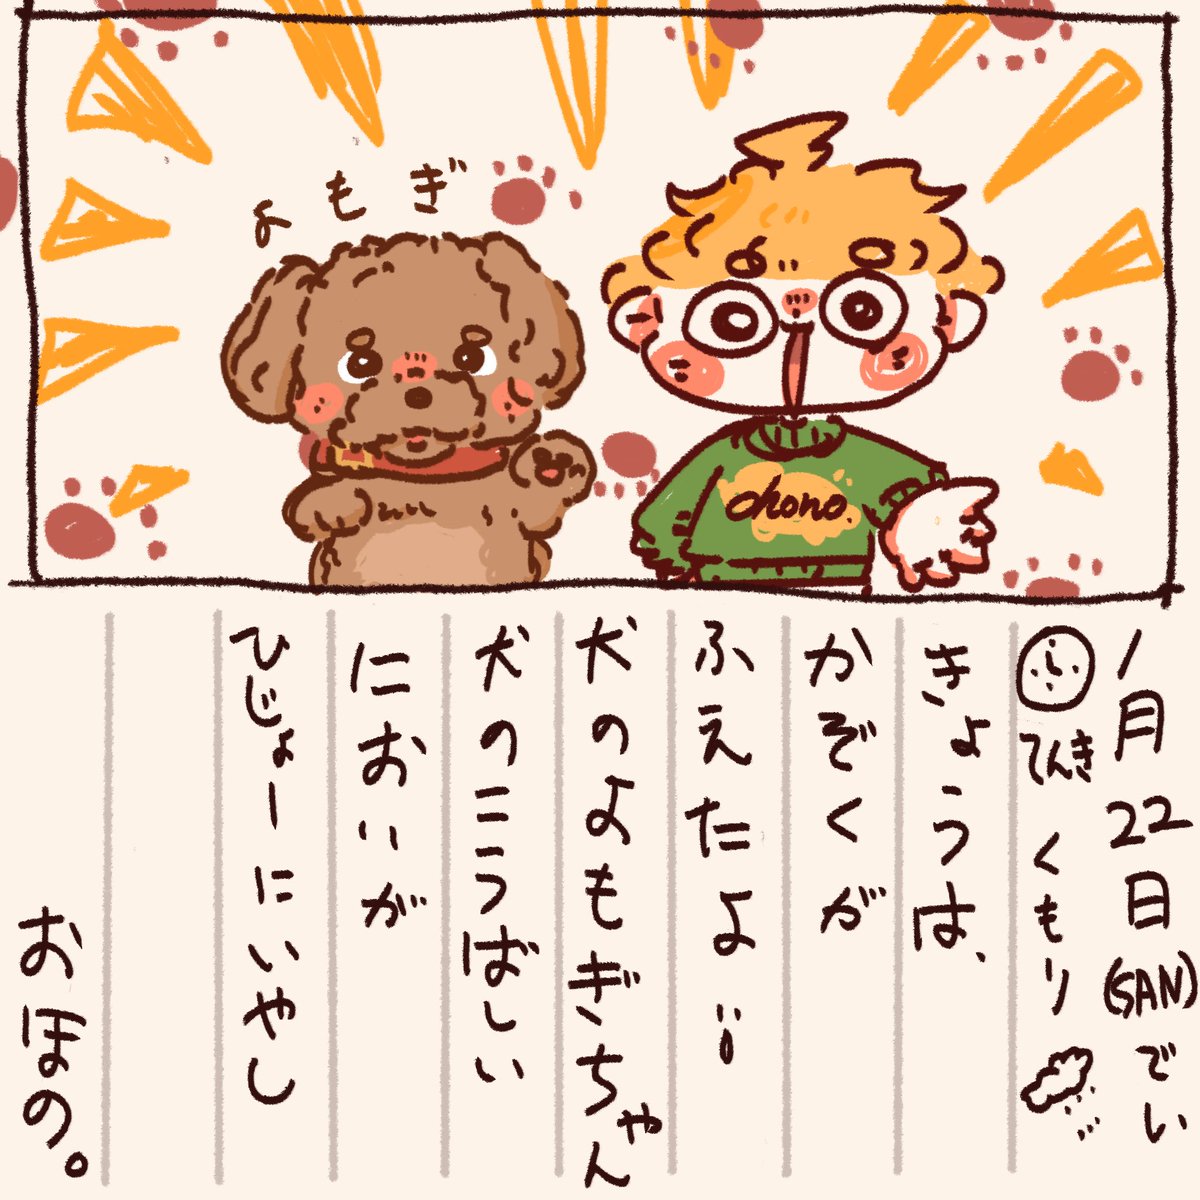 よもぎ
ohono.
1月22日(SAN)でい
てんき くもり
きょうは、
かぞくが
ふえたよ
犬のよもぎちゃん
犬のこうばしい
においが
ひじょーにいやし
おほの。